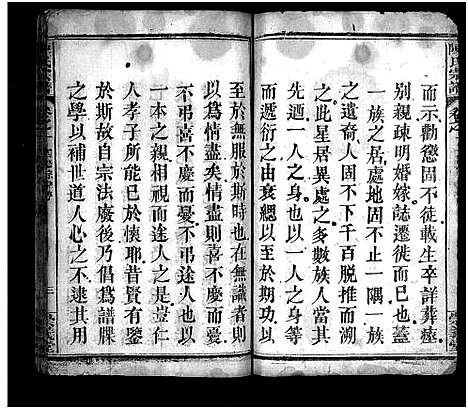 而示勸懲固不徒載生卒詳葬瘞
別親疎明婚嫁誌遷徙而已也蓋
一族之居處地固不止一隅一族
之遺裔人固不下千百脫推而溯
之此星居異處之多數族人當其
始則一人之身也以一人之身等
而遞衍之由衰緦以至於期功以
至於無服於斯時也在無識者則
以爲情盡矣情盡則喜不慶而憂
不弔喜不慶而憂不弔則途人矣
一本之親相視而途人之是豈仁
人孝子所能已於懷耶昔賢有鑒
於斯故自宗法廢後乃倡爲譜牒
之學以補世道人心之不逮其用
陳氏宗譜